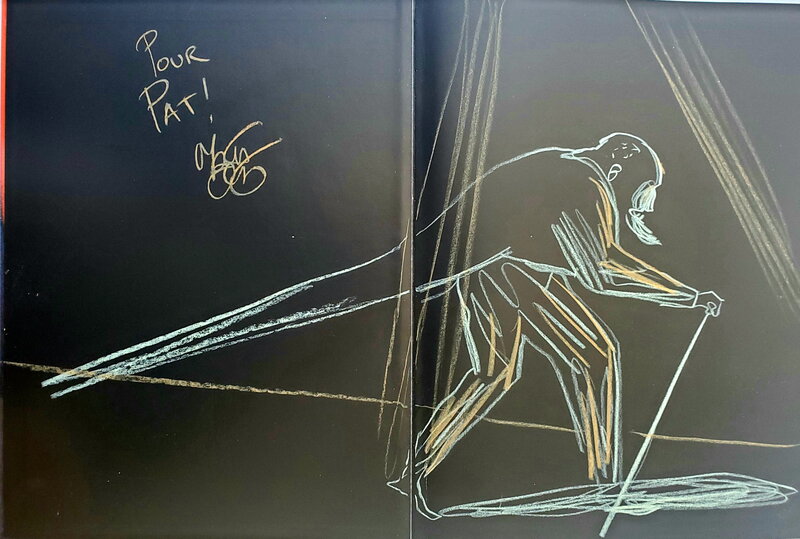 POUR
PAT!